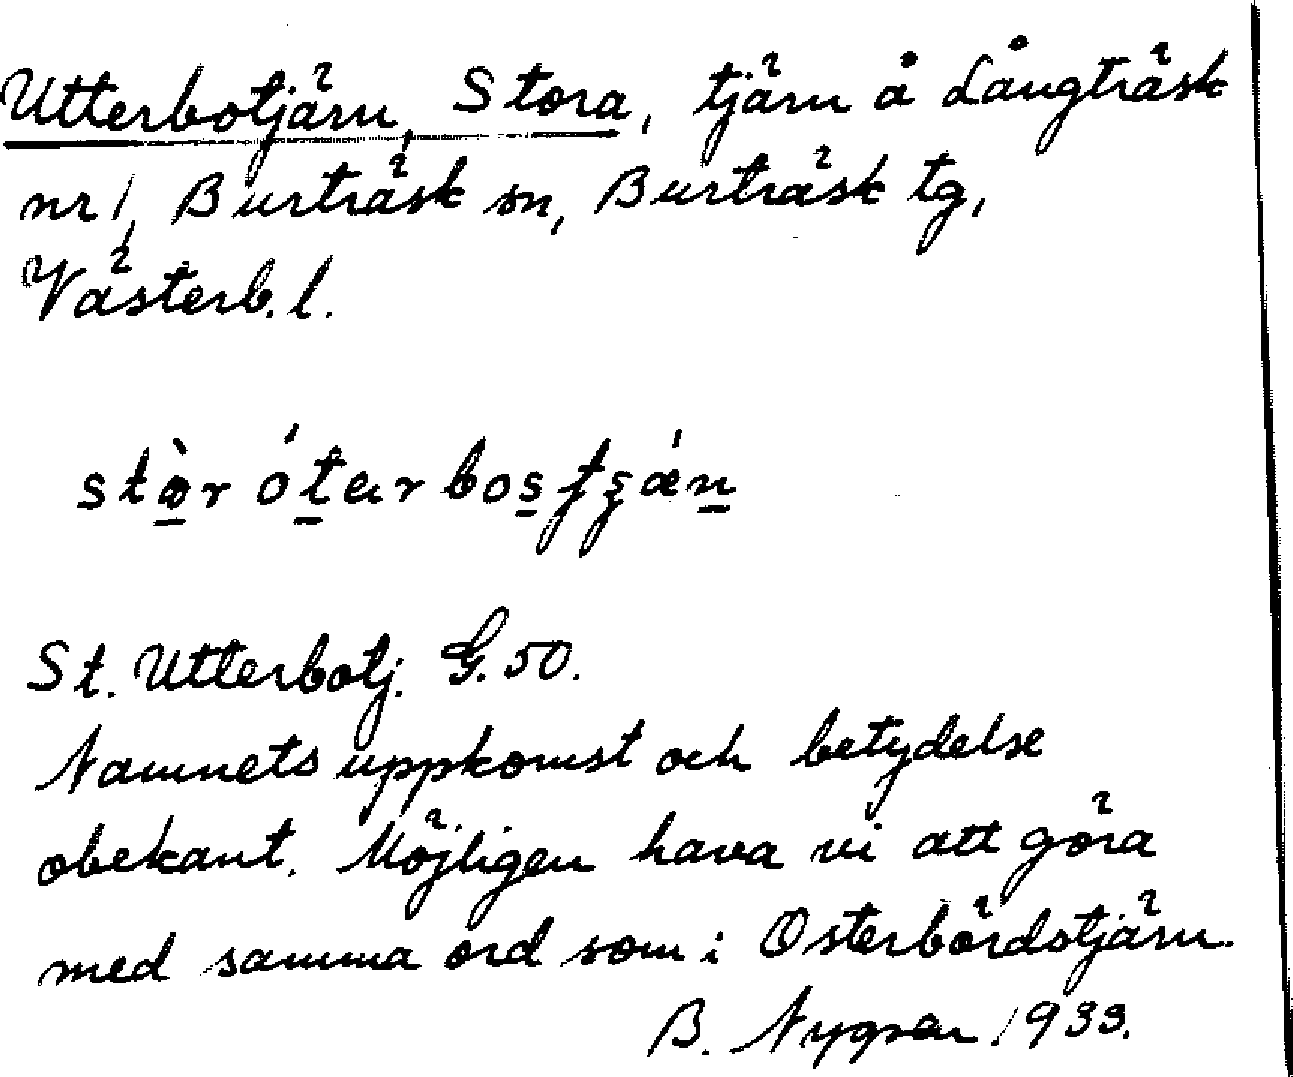 Utterbotjärn, Stora, tjärn å Långträsk
nr 1, Burträsk sn, Burträsk tg,
Västerb. l.
stòr ótar bos
St. Utterbotj. G. 50.
Namnets uppkomst och betydelse
obekant. Möjligen hava vi att göra
med samma ord som i Osterbördstjärn.
B. Nygren 1933.